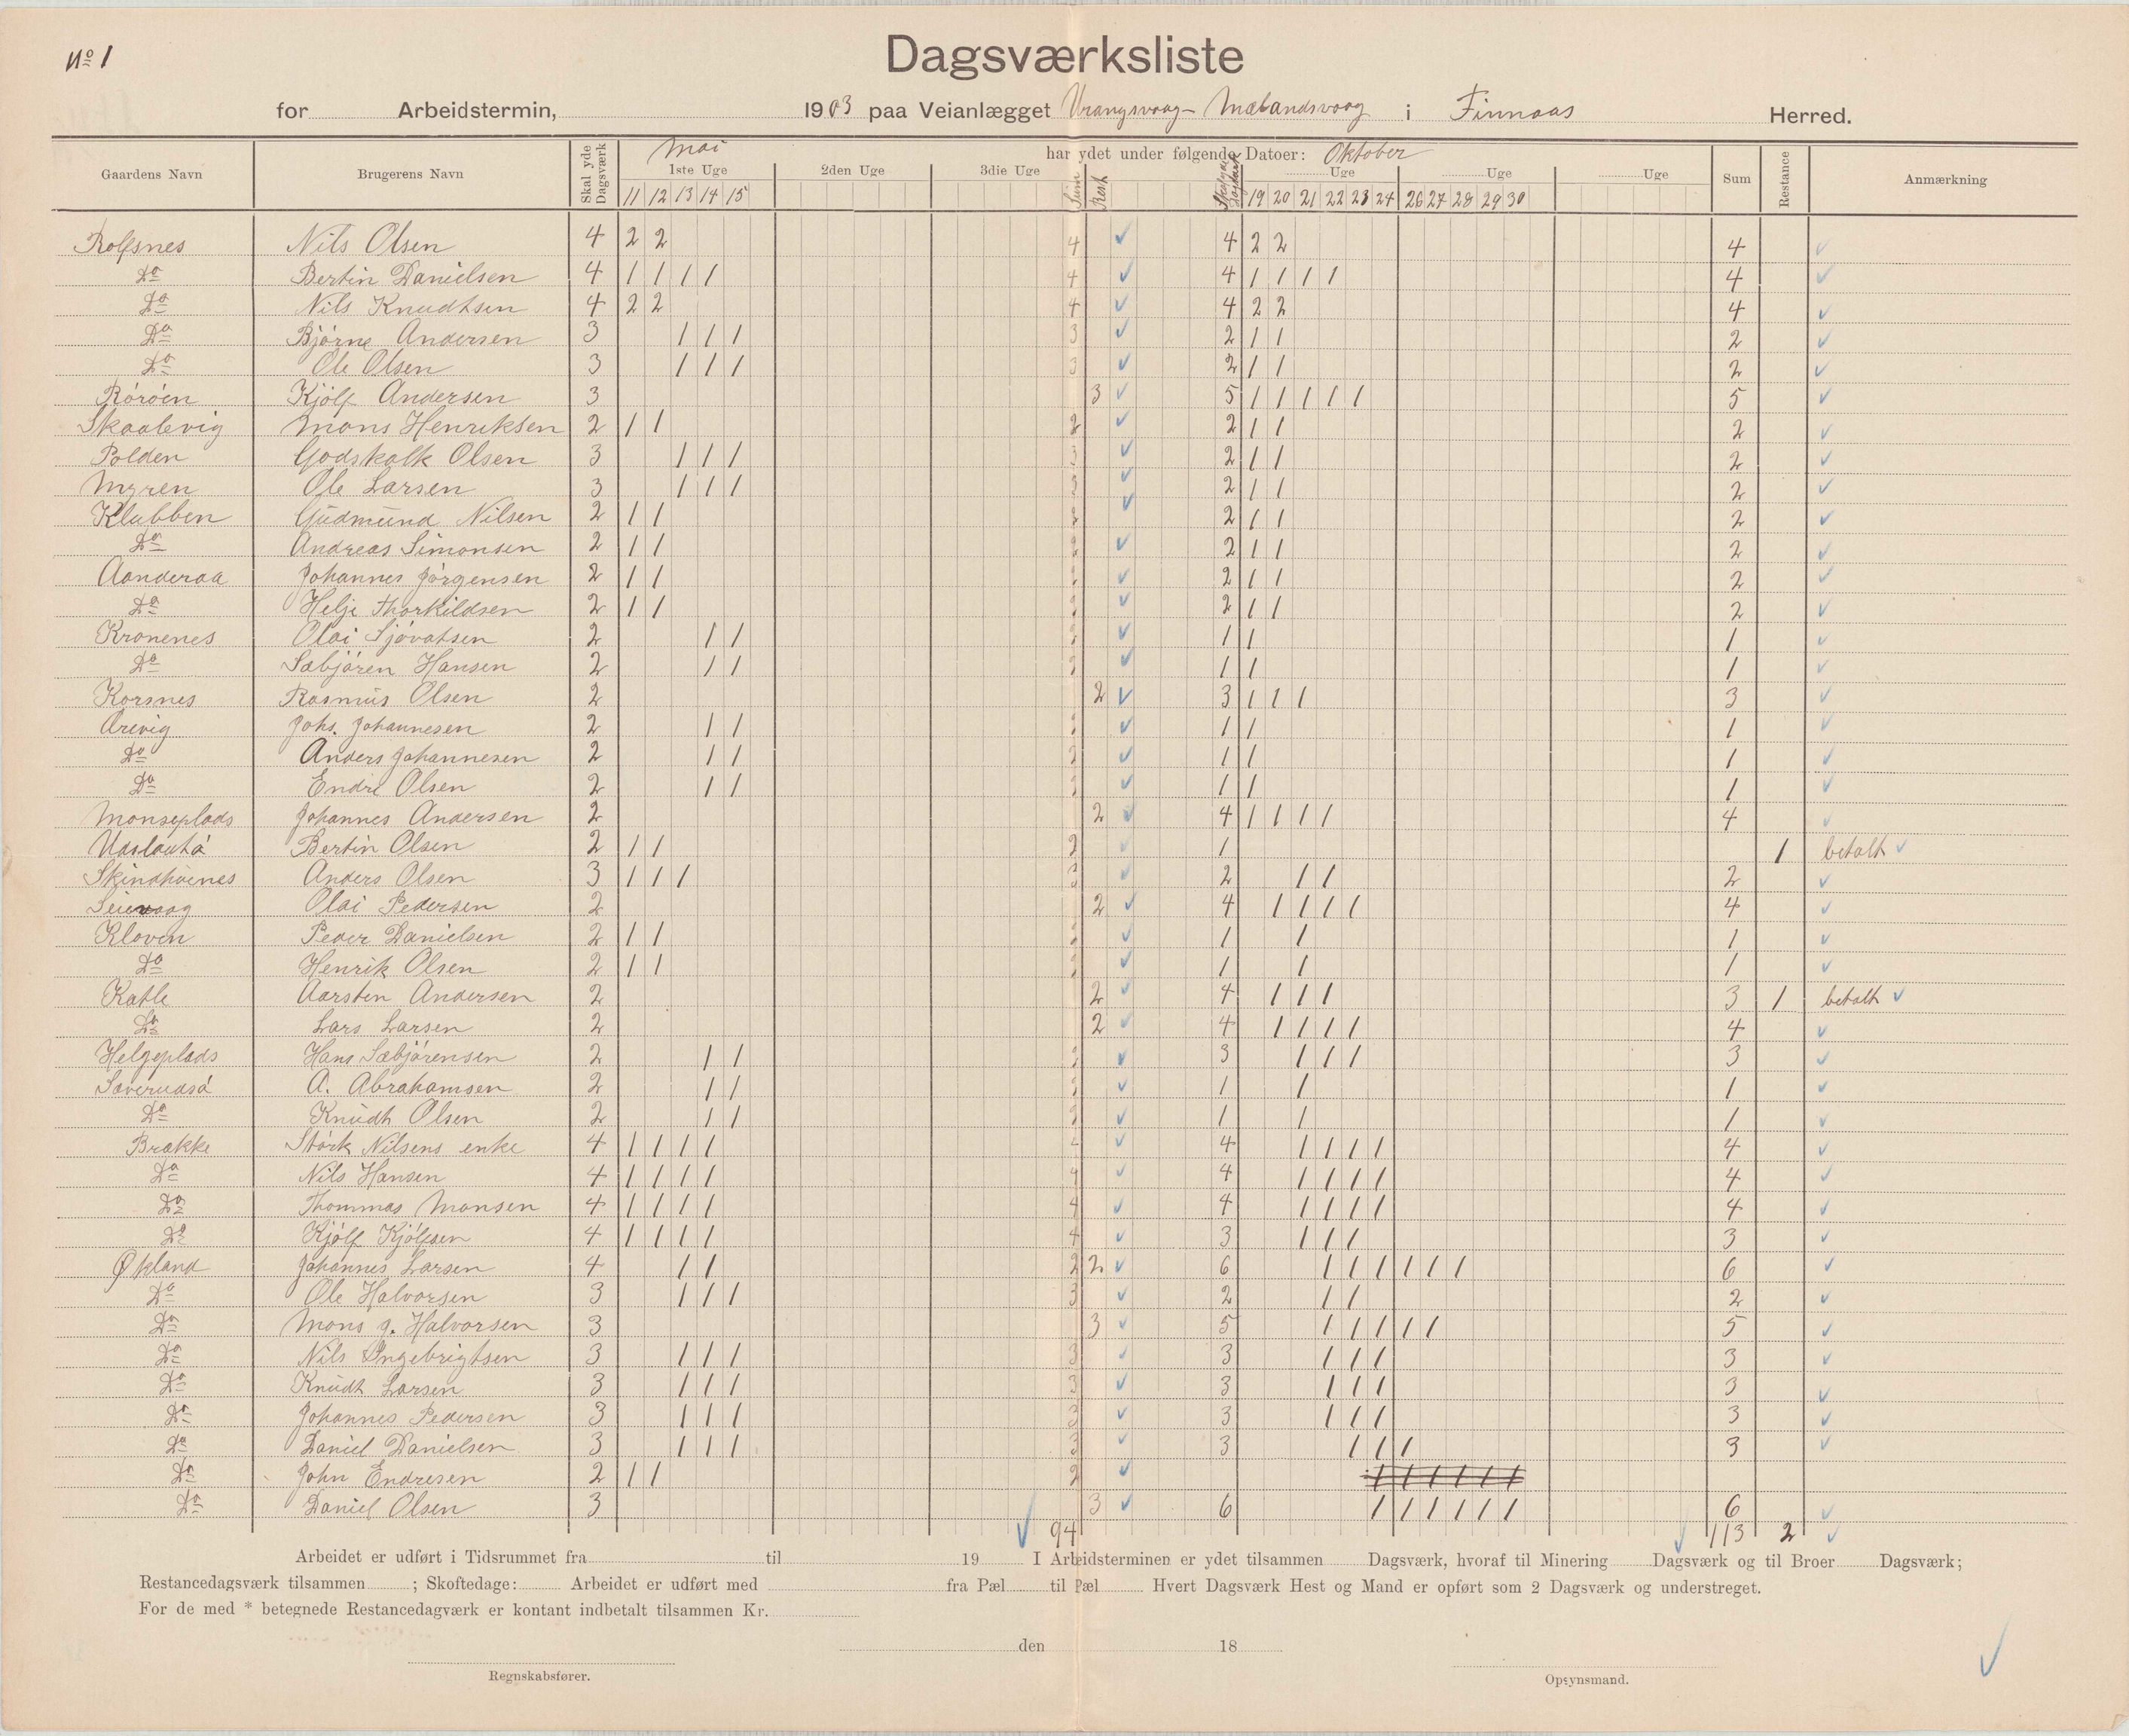 No 1
Dagsværksliste
for Arbeidstermin, 1903 paa Veianlægget Vrangsvaag - Mælandsvaag i Finnaas Herred.
Gaardens Navn Brugerens Navn Skal yde Dagsværk Mai har ydet under følgende Datoer: Oktober Sum Restance Anmærkning
1ste Uge 2den Uge 3die Uge Sum Rest Uge Uge Uge
11 12 13 14 15 19 20 21 22 23 24 26 27 28 29 30
Rolfsnes Nils Olsen 4 2 2 4 4 2 2 4
Do Bertin Danielsen 4 1 1 1 1 4 4 1 1 1 1 4
Do Nils Knudtsen 4 2 2 4 4 2 2 4
Do Bjørne Andersen 3 1 1 1 3 2 1 1 2
Do Ole Olsen 3 1 1 1 3 2 1 1 2
Rørøen Kjølf Andersen 3 3 5 1 1 1 1 1 5
Skaalevig Mons Henriksen 2 1 1 2 2 1 1 2
Polden Godskalk Olsen 3 1 1 1 3 2 1 1 2
Myren Ole Larsen 3 1 1 1 3 2 1 1 2
Klubben Gudmund Nilsen 2 1 1 2 2 1 1 2
Do Andreas Simonsen 2 1 1 2 2 1 1 2
Aanderaa Johannes Jørgensen 2 1 1 2 2 1 1 2
Do Helje Thorkildsen 2 1 1 2 2 1 1 2
Kronenes Olai Sjovatsen 2 1 1 2 1 1 1
Do Sæbjøren Hansen 2 1 1 2 1 1 1
Korsnes Rasmus Olsen 2 2 3 1 1 1 3
Arevig Johs. Johannesen 2 1 1 2 1 1 1
Do Anders Johannesen 2 1 1 2 1 1 1
Do Endre Olsen 2 1 1 2 1 1 1
Monseplads Johannes Andersen 2 2 4 1 1 1 1 4
Bertin Olsen 2 1 1 2 1 1 betalt
Anders Olsen 3 1 1 1 3 2 1 1 2
Seievaag Olai Pedersen 2 2 4 1 1 1 1 4
Kloven Peder Danielsen 2 1 1 2 1 1 1
Do Henrik Olsen 2 1 1 2 1 1 1
Katle Aarsten Andersen 2 2 4 1 1 1 3 1 betalt
Do Lars Larsen 2 2 4 1 1 1 1 4
Helgeplads Hans Sæbjørensen 2 1 1 2 3 1 1 1 3
A. Abrahamsen 2 1 1 2 1 1 1
Do Knudt Olsen 2 1 1 2 1 1 1
Brække Størk Nilsens enke 4 1 1 1 1 4 4 1 1 1 1 4
Do Nils Hansen 4 1 1 1 1 4 4 1 1 1 1 4
Do Thommas Monsen 4 1 1 1 1 4 4 1 1 1 1 4
Do Kjølf Kjølfsen 4 1 1 1 1 4 3 1 1 1 3
Økland Johannes Larsen 4 1 1 2 2 6 1 1 1 1 1 1 6
Do Ole Halvorsen 3 1 1 1 3 2 1 1 2
Do Mons g. Halvorsen 3 3 5 1 1 1 1 1 5
Do Nils Ingebrigtsen 3 1 1 1 3 3 1 1 1 3
Do Knudt Larsen 3 1 1 1 3 3 1 1 1 3
Do Johannes Pedersen 3 1 1 1 3 3 1 1 1 3
Do Daniel Danielsen 3 1 1 1 3 3 1 1 1 3
Do John Endresen 2 1 1 2 1 1 1 1 1 1
Do Daniel Olsen 3 3 6 1 1 1 1 1 1 6
94 113 2
Arbeidet er udført i Tidsrummet fra til 19 I Arbeidsterminen er ydet tilsammen Dagsværk, hvoraf til Minering Dagsværk og til Broer Dagsværk;
Restancedagsværk tilsammen ; Skoftedage: Arbeidet er udført med fra Pæl til Pæl Hvert Dagsværk Hest og Mand er opført som 2 Dagsværk og understreget.
For de med * betegnede Restancedagværk er kontant indbetalt tilsammen Kr.
den 18
Regnskabsfører. Opsynsmand.